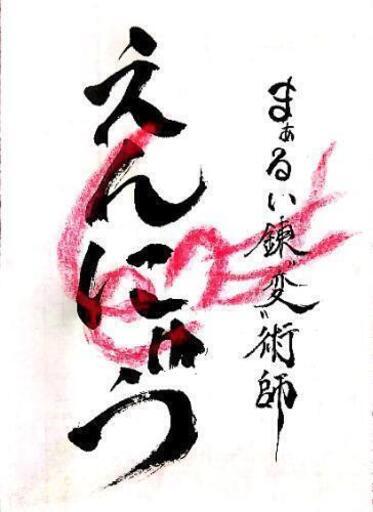 まぁるい錬"変"術師
えんにゅう